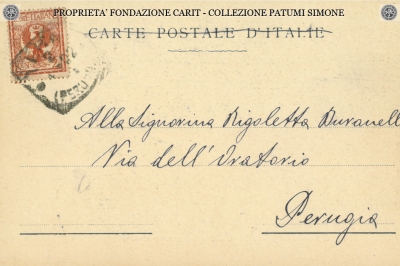 PROPRIETA' FONDAZIONE CARIT - COLLEZIONE PATUMI SIMONE
CARTE POSTALE D'ITALIE
Alla Signorina Rigoletta Buranelli
Via dell'Oratorio
Perugia